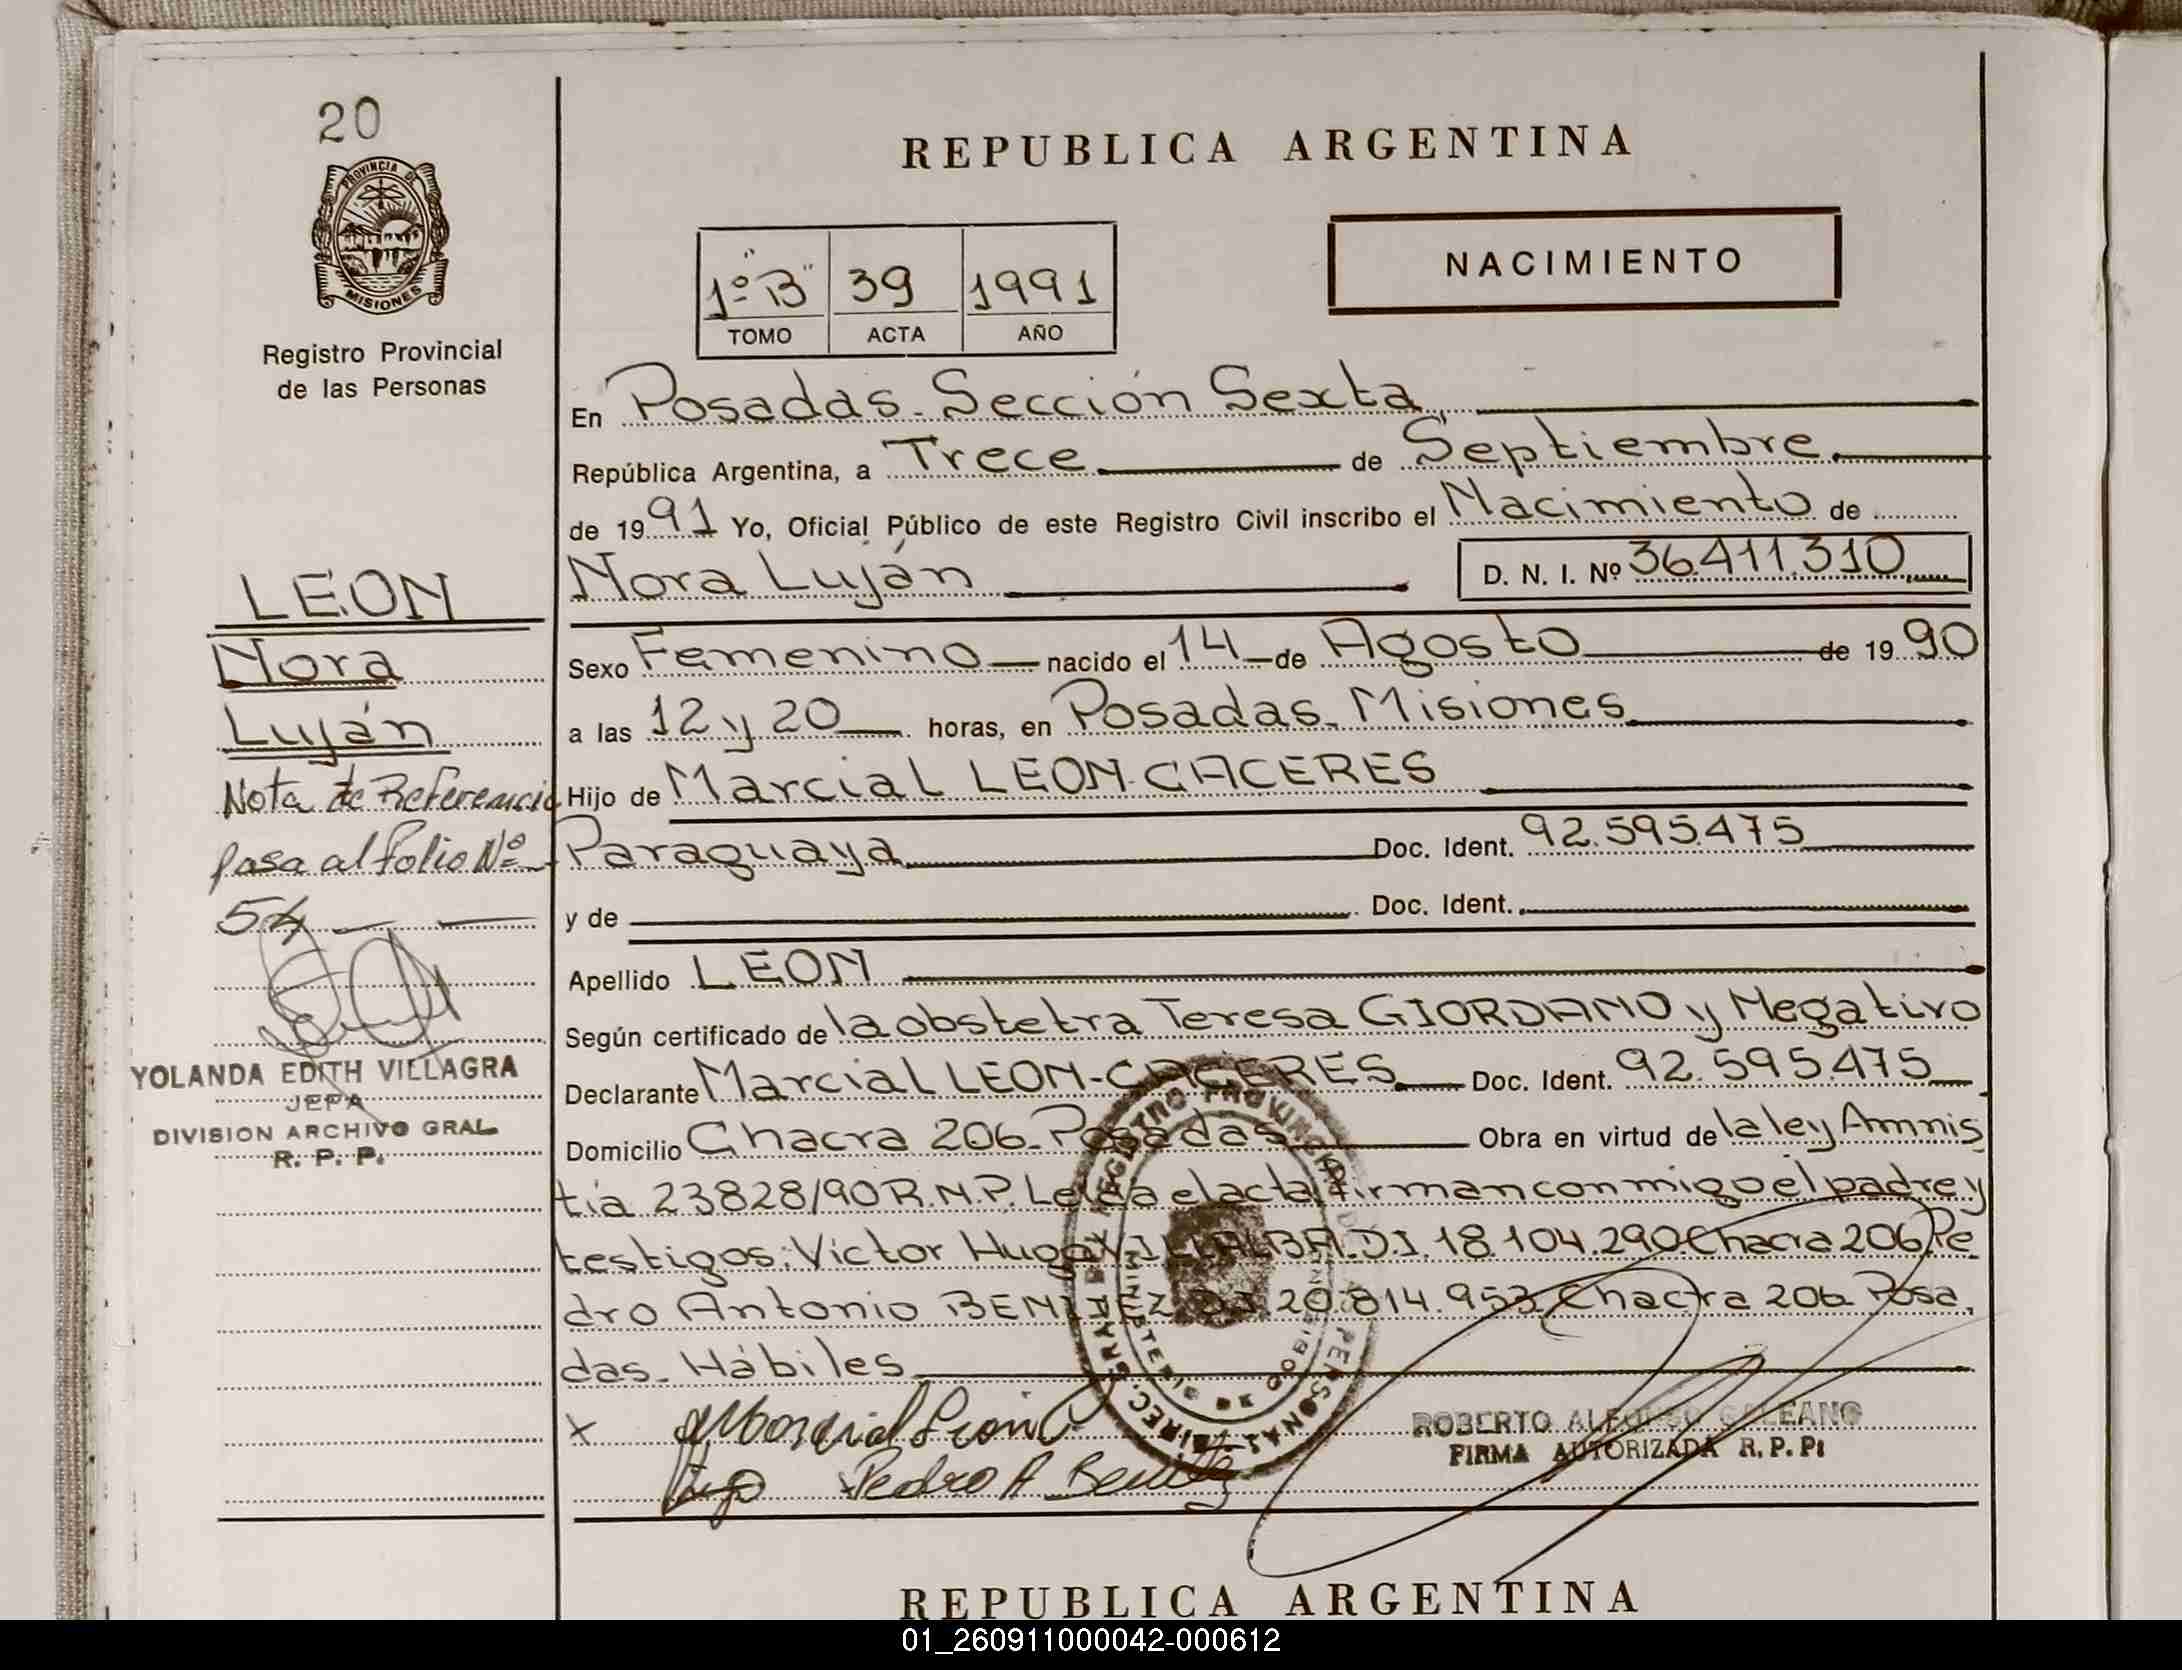 20
PROVINCIA DE
MISIONES
Registro Provincial
de las Personas
LEON
Nora
Luján
Nota de Referencia
pasa al folio Nº
54
YOLANDA EDITH VILLAGRA
JEFA
DIVISION ARCHIVO GRAL
R. P. P.
REPUBLICA ARGENTINA
NACIMIENTO
1º "B" 39 1991
TOMO ACTA AÑO
En Posadas-Sección Sexta
República Argentina, a Trece de Septiembre
de 1991 Yo, Oficial Público de este Registro Civil inscribo el Nacimiento de
Nora Luján D. N. I. Nº 36.411.310
Sexo Femenino nacido el 14 de Agosto de 1990
a las 12 y 20 horas, en Posadas-Misiones
Hijo de Marcial LEON-CACERES
Paraguaya Doc. Ident. 92.595.475
y de Doc. Ident.
Apellido LEON
Según certificado de la obstetra Teresa GIORDANO y Negativo
Declarante Marcial LEON-CACERES Doc. Ident. 92.595.475
Domicilio Chacra 206-Posadas Obra en virtud de la ley Amnis
tía 23828/90 R.N.P. Leída el acta firman conmigo el padre y
testigos: Víctor Hugo VILLALBA D.I. 18.104.290 Chacra 206 Pe
dro Antonio BENITEZ D.I. 20.814.953 Chacra 206 Posa
das-Hábiles
x Marcial Leon C
Pedro A Benitez
ROBERTO ALFONSO GALEANO
FIRMA AUTORIZADA R. P. P.
REPUBLICA ARGENTINA
01_260911000042-000612